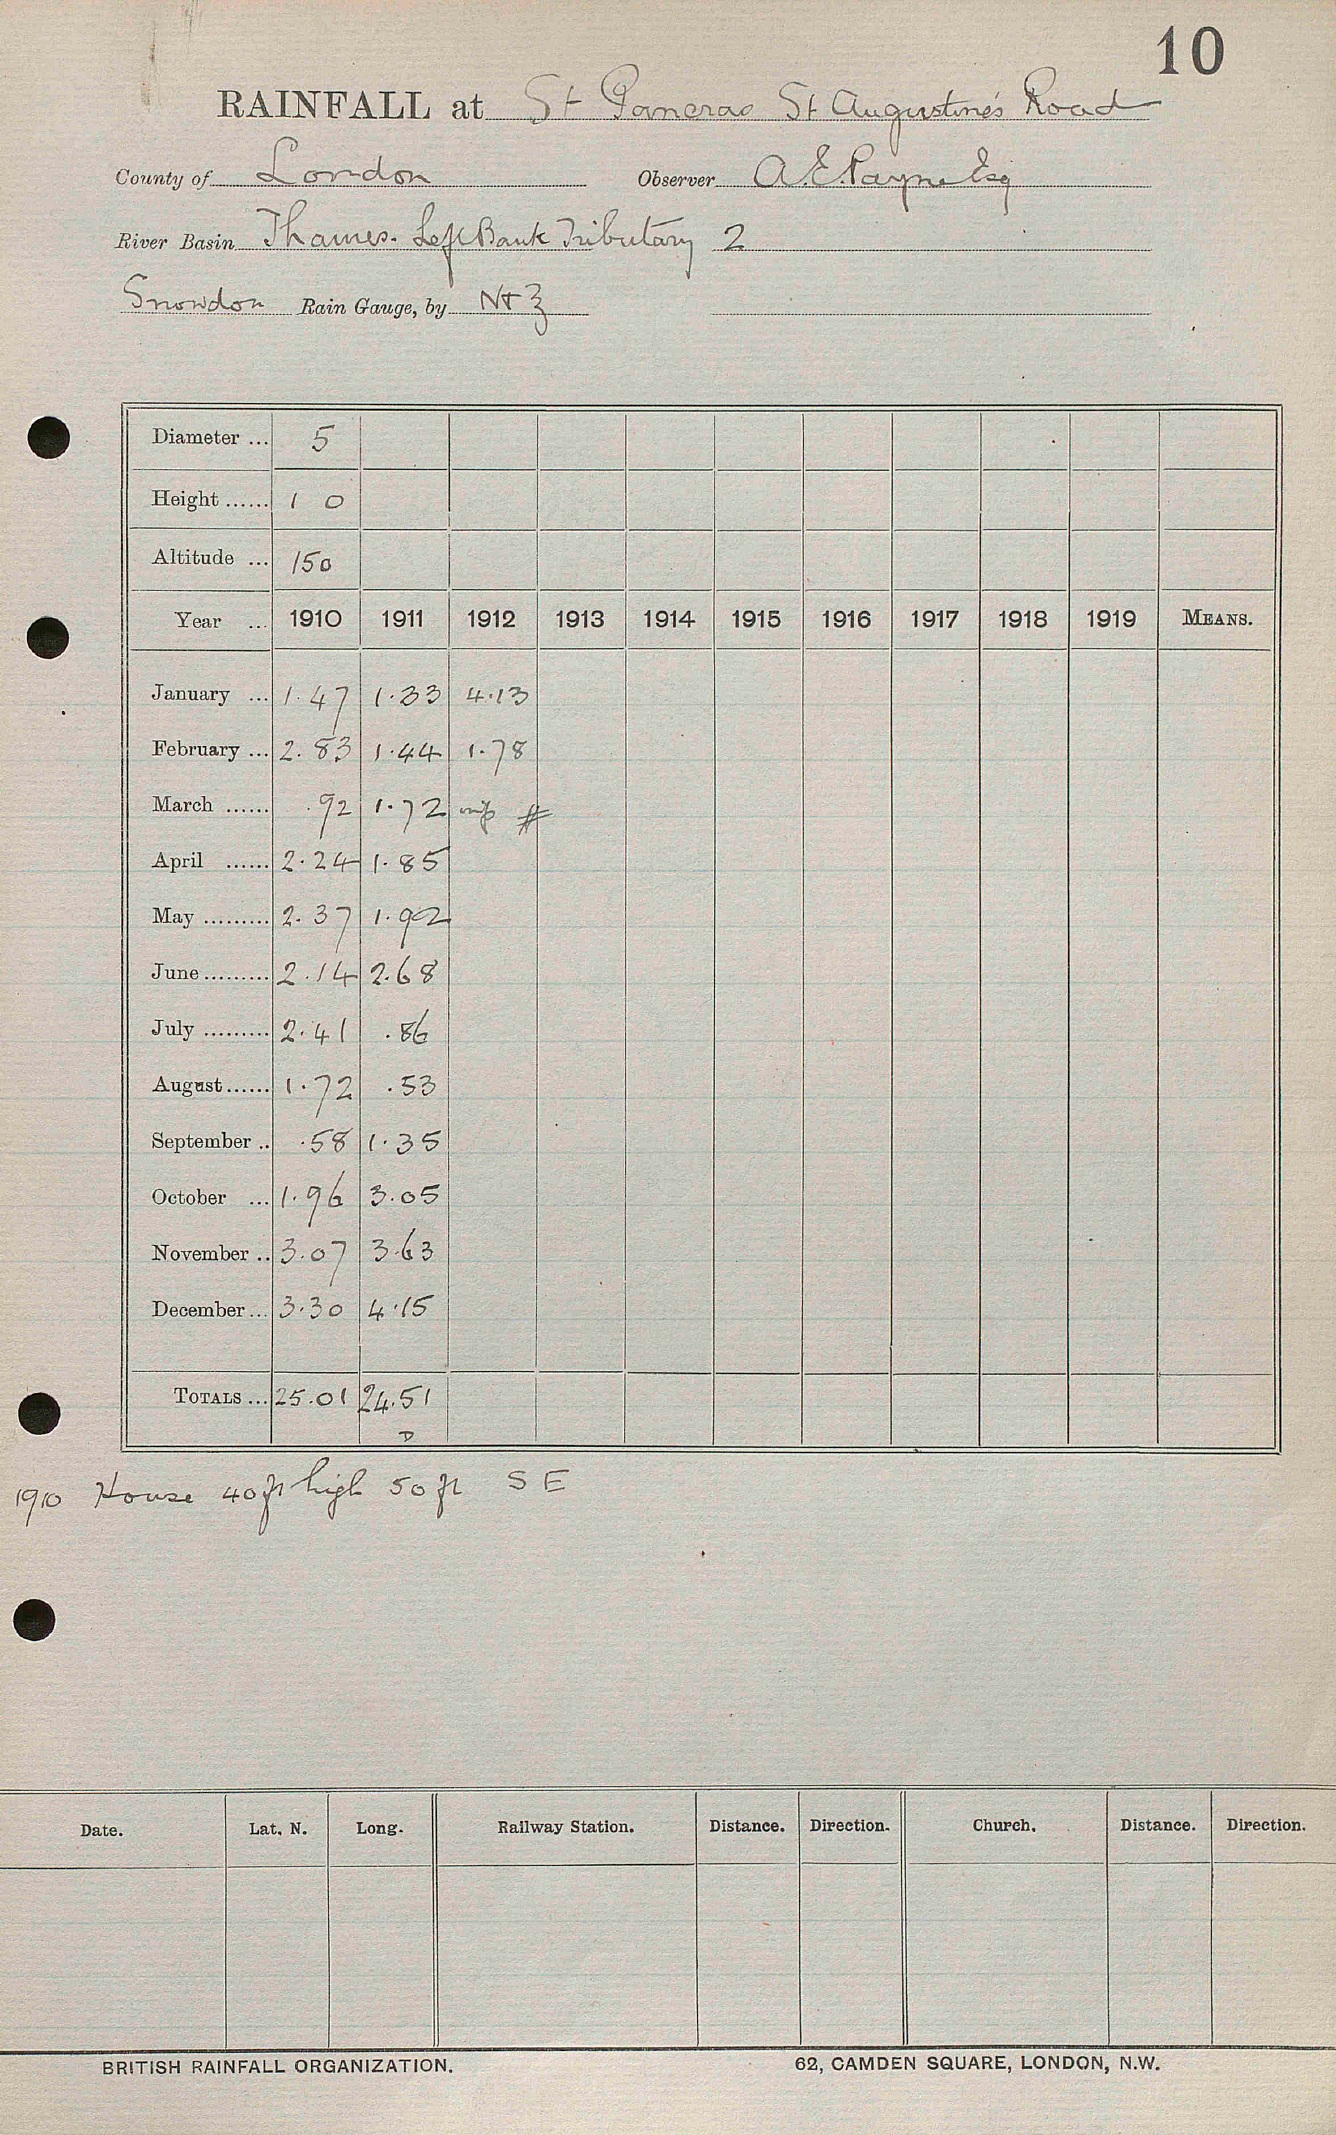 10
RAINFALL at St Pancras St Augustine's Road
County of London Observer A.E. Payne Esq
River Basin Thames. Left Bank Tributary 2
Snowdon Rain Gauge, by N & Z
Diameter ... 5
Height ...... 1 0
Altitude ... 150
Year ... 1910 1911 1912 1913 1914 1915 1916 1917 1918 1919 MEANS.
January ... 1.47 1.33 4.13
February ... 2.83 1.44 1.78
March ...... .92 1.72 #
April ...... 2.24 1.85
May ......... 2.37 1.92
June ......... 2.14 2.68
July ......... 2.41 .86
August ...... 1.72 .53
September .. .58 1.35
October ... 1.96 3.05
November .. 3.07 3.63
December ... 3.30 4.15
TOTALS ... 25.01 24.51
D
1910 House 40 ft high 50 ft S E
Date. Lat. N. Long. Railway Station. Distance. Direction. Church. Distance. Direction.
BRITISH RAINFALL ORGANIZATION. 62, CAMDEN SQUARE, LONDON, N.W.